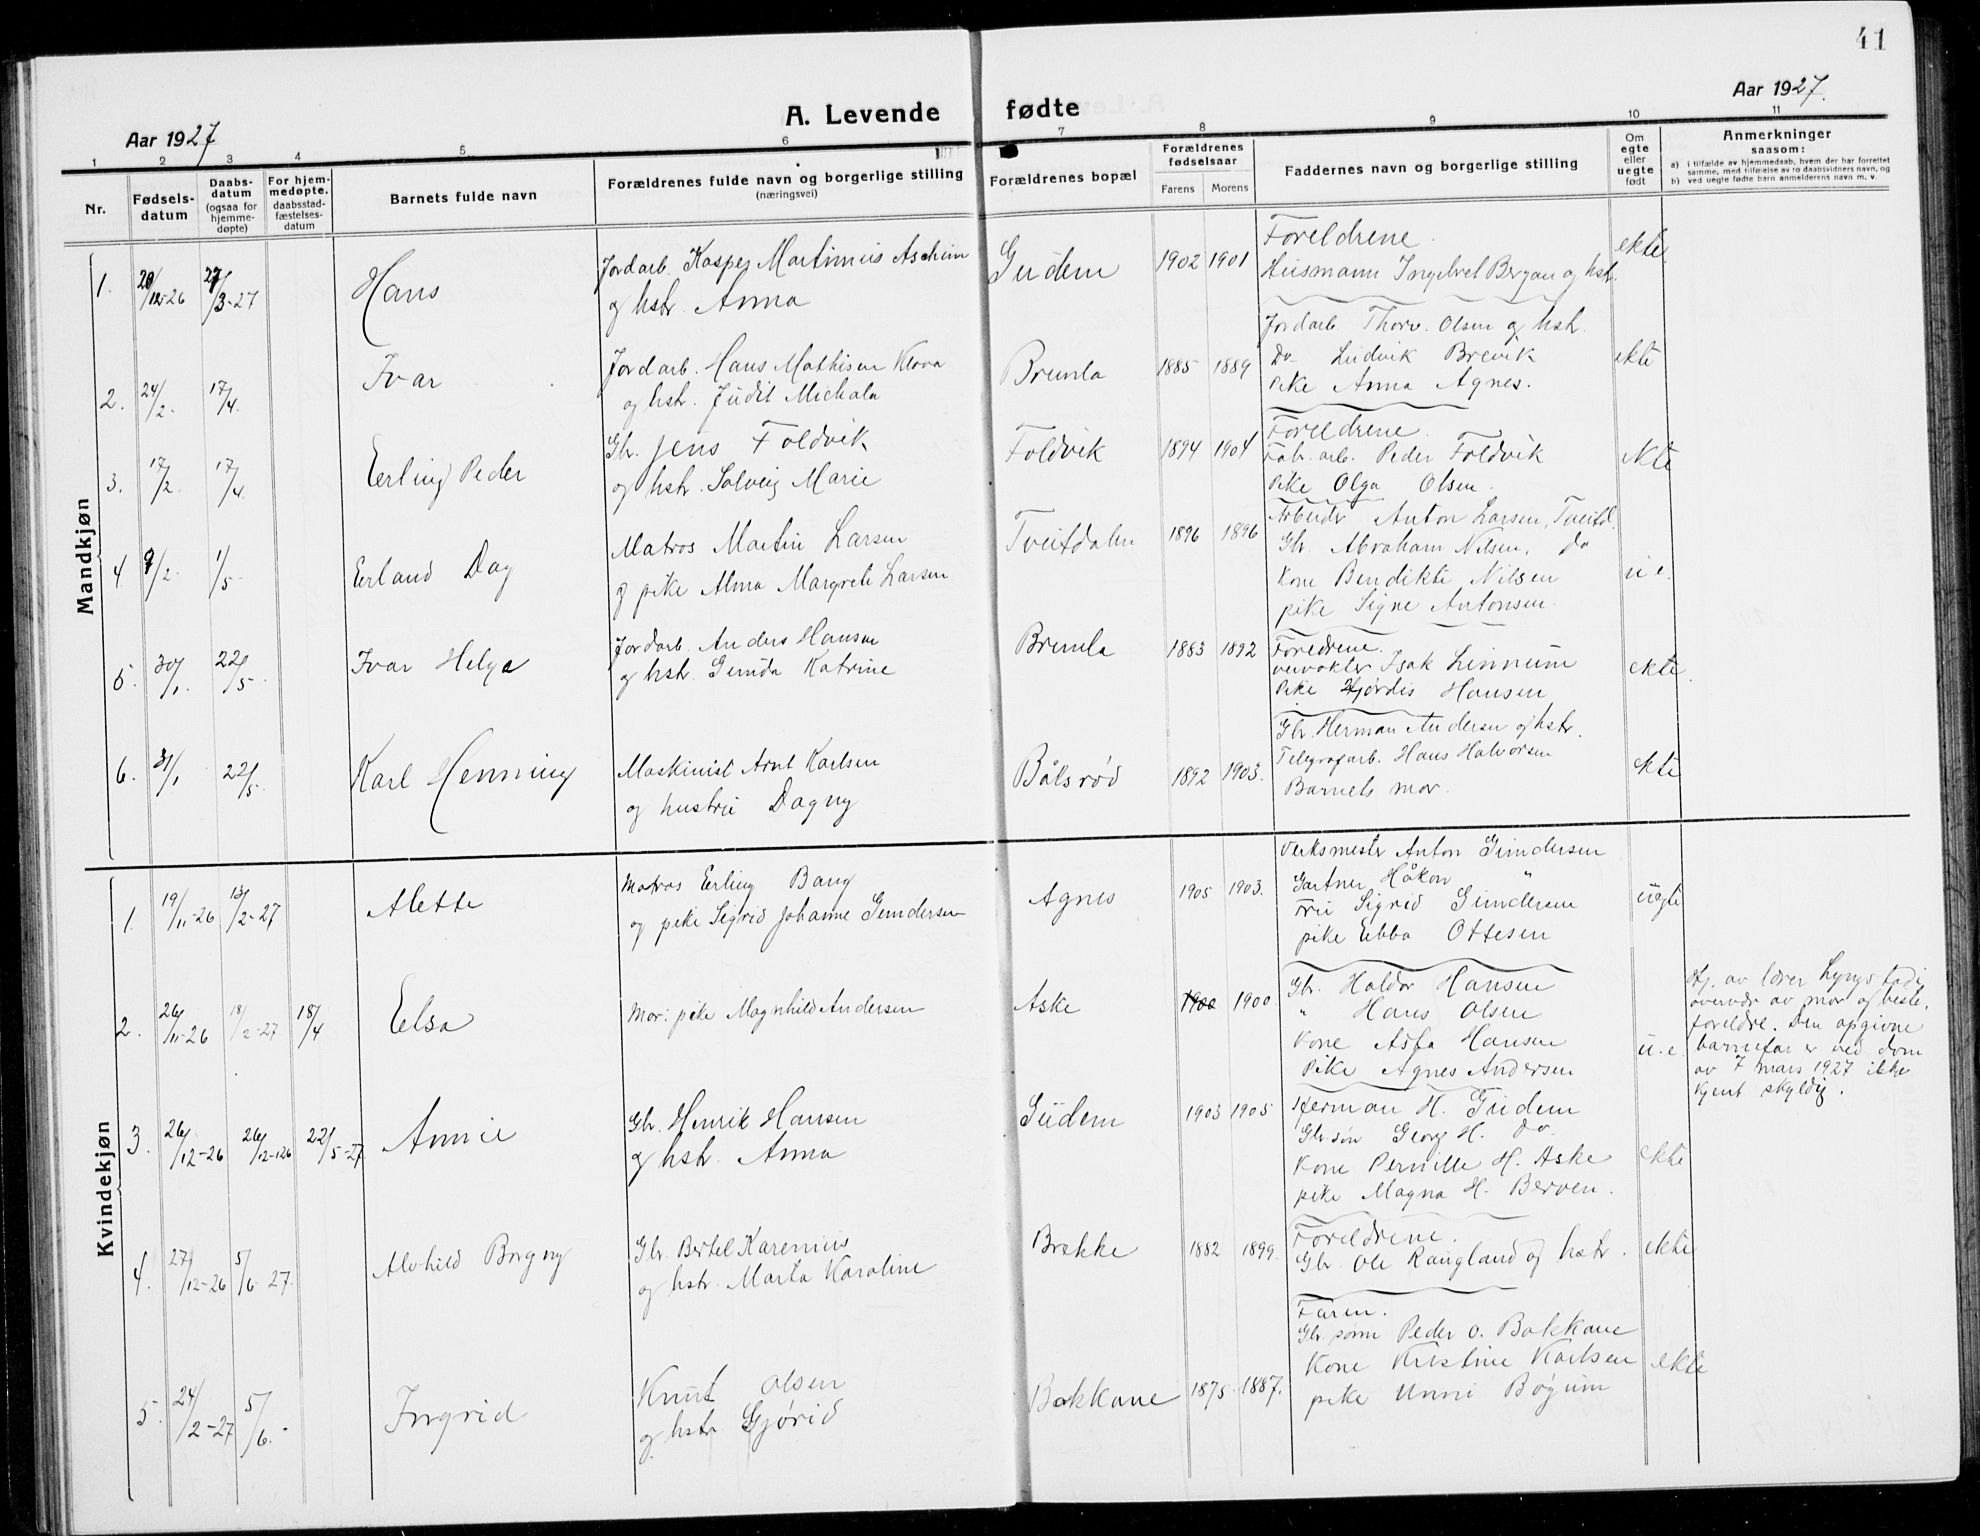 41
Aar 1927
A. Levende fødte
Aar 1927.
1 2 3 4 5 6 7 8 9 10 11
Nr.
Fødsels-
datum
Daabs-
datum
(ogsaa for
hjemme-
døpte)
For hjem-
medøpte,
daabsstad-
fæstelses-
datum
Barnets fulde navn
Forældrenes fulde navn og borgerlige stilling
(næringsvei)
Forældrenes bopæl
Forældrenes
fødselsaar
Farens Morens
Faddernes navn og borgerlige stilling
Om
egte
eller
uegte
født
Anmerkninger
saasom:
a) i tilfælde av hjemmedaab, hvem der har forrettet
samme, med tilføielse av to daabsvidners navn, og
b) ved uegte fødte barn anmelderens navn m. v.
Mandkjøn
1. 20/12-26 27/3-27 Hans
Jordarb. Kasper Martinius Ascheim
og hstr. Anna
Gudem 1902 1901
Foreldrene.
Husmann Ingebret Bergan og hstr.
ekte
2. 24/2. 17/4. Ivar
Jordarb. Hans Mathisen Klova
og hstr. Judit Michala
Brunla 1885 1889
Jordarb. Thorv. Olsen og hstr.
Do Ludvik Brevik
Pike Anna Agnes.
ekte
3. 17/2. 17/4. Eerling Peder
Gbr. Jens Foldvik
og hstr. Solveig Marie
Foldvik 1894 1904
Foreldrene.
Fabr. arb. Peder Foldvik
Pike Olga Olsen.
ekte
4 9/2- 1/5- Erland Dag
Matros Martin Larsen
og pike Alma Margrete Larsen
Tveitdalen 1896 1896
Arbeider Anton Larsen, Tveitd.
Gbr. Abraham Nilsen, Do
Kone Bendikte Nilsen
pike Signe Antonsen.
u e.
5. 30/1. 22/5-. Ivar Helge
Jordarb. Anders Hansen
og hstr. Gunda Katrine
Brunla 1883 1892
Foreldrene.
veivokter Isak Linnum
Pike Hjørdis Hansen
ekte.
6. 31/1 22/5. Karl Henning
Maskinist Arnt Karlsen
og hustru Dagny
Bålsrød 1892 1903.
Gbr. Herman Andersen og hstr.
Telegrafarb. Hans Halvorsen
Barnets mor.
ekte
Kvindekjøn
1. 19/11-26 13/2-27 Alette
Matros Eerling Bang
og pike Sigrid Johanne Gundersen
Agnes 1905 1903.
Verksmester Anton Gundersen
Gartner Håkon "
Fru Sigrid Gundersen
pike Ebba Ottesen
uegte
2. 26/11-26 18/2-27 18/4 Eelsa
Mor: pike Magnhild Andersen
Aske 1900 1900.
Gbr. Haldor Hansen
" Hans Olsen
Kone Asta Hansen
Pike Agnes Andersen
u. e.
Hj. av lærer Lyngstad i
overvær av mor og beste.
foreldre. Den opgivne
barnefar er ved dom
av 7 mars 1927 ikke
kjent skyldig.
3. 26/12-26 26/12-126 22/5-27 Annie
Gbr. Henrik Hansen
og hstr. Anna
Gudem 1903 1905
Herman H. Gudem
Gbr.søn Georg H. Do.
Kone Pernille H. Aske
pike Magna H. Berven.
ekte
4. 27/12-26 5/6-27. Alvhild Borgny
Gbr. Bertel Karenius
og hstr. Marta Karoline
Brekke 1882 1899.
Foreldrene.
Gbr. Ole Raugland og hstr.
ekte
5. 24/2-27 5/6.- Ingrid
Knut Olsen
og hstr. Gjørid
Bakkane 1875 1887.
Faren.
Gbr sønn Peder O. Bakkane
Kone Kristine Karlsen
pike Unni Bøgum
ekte